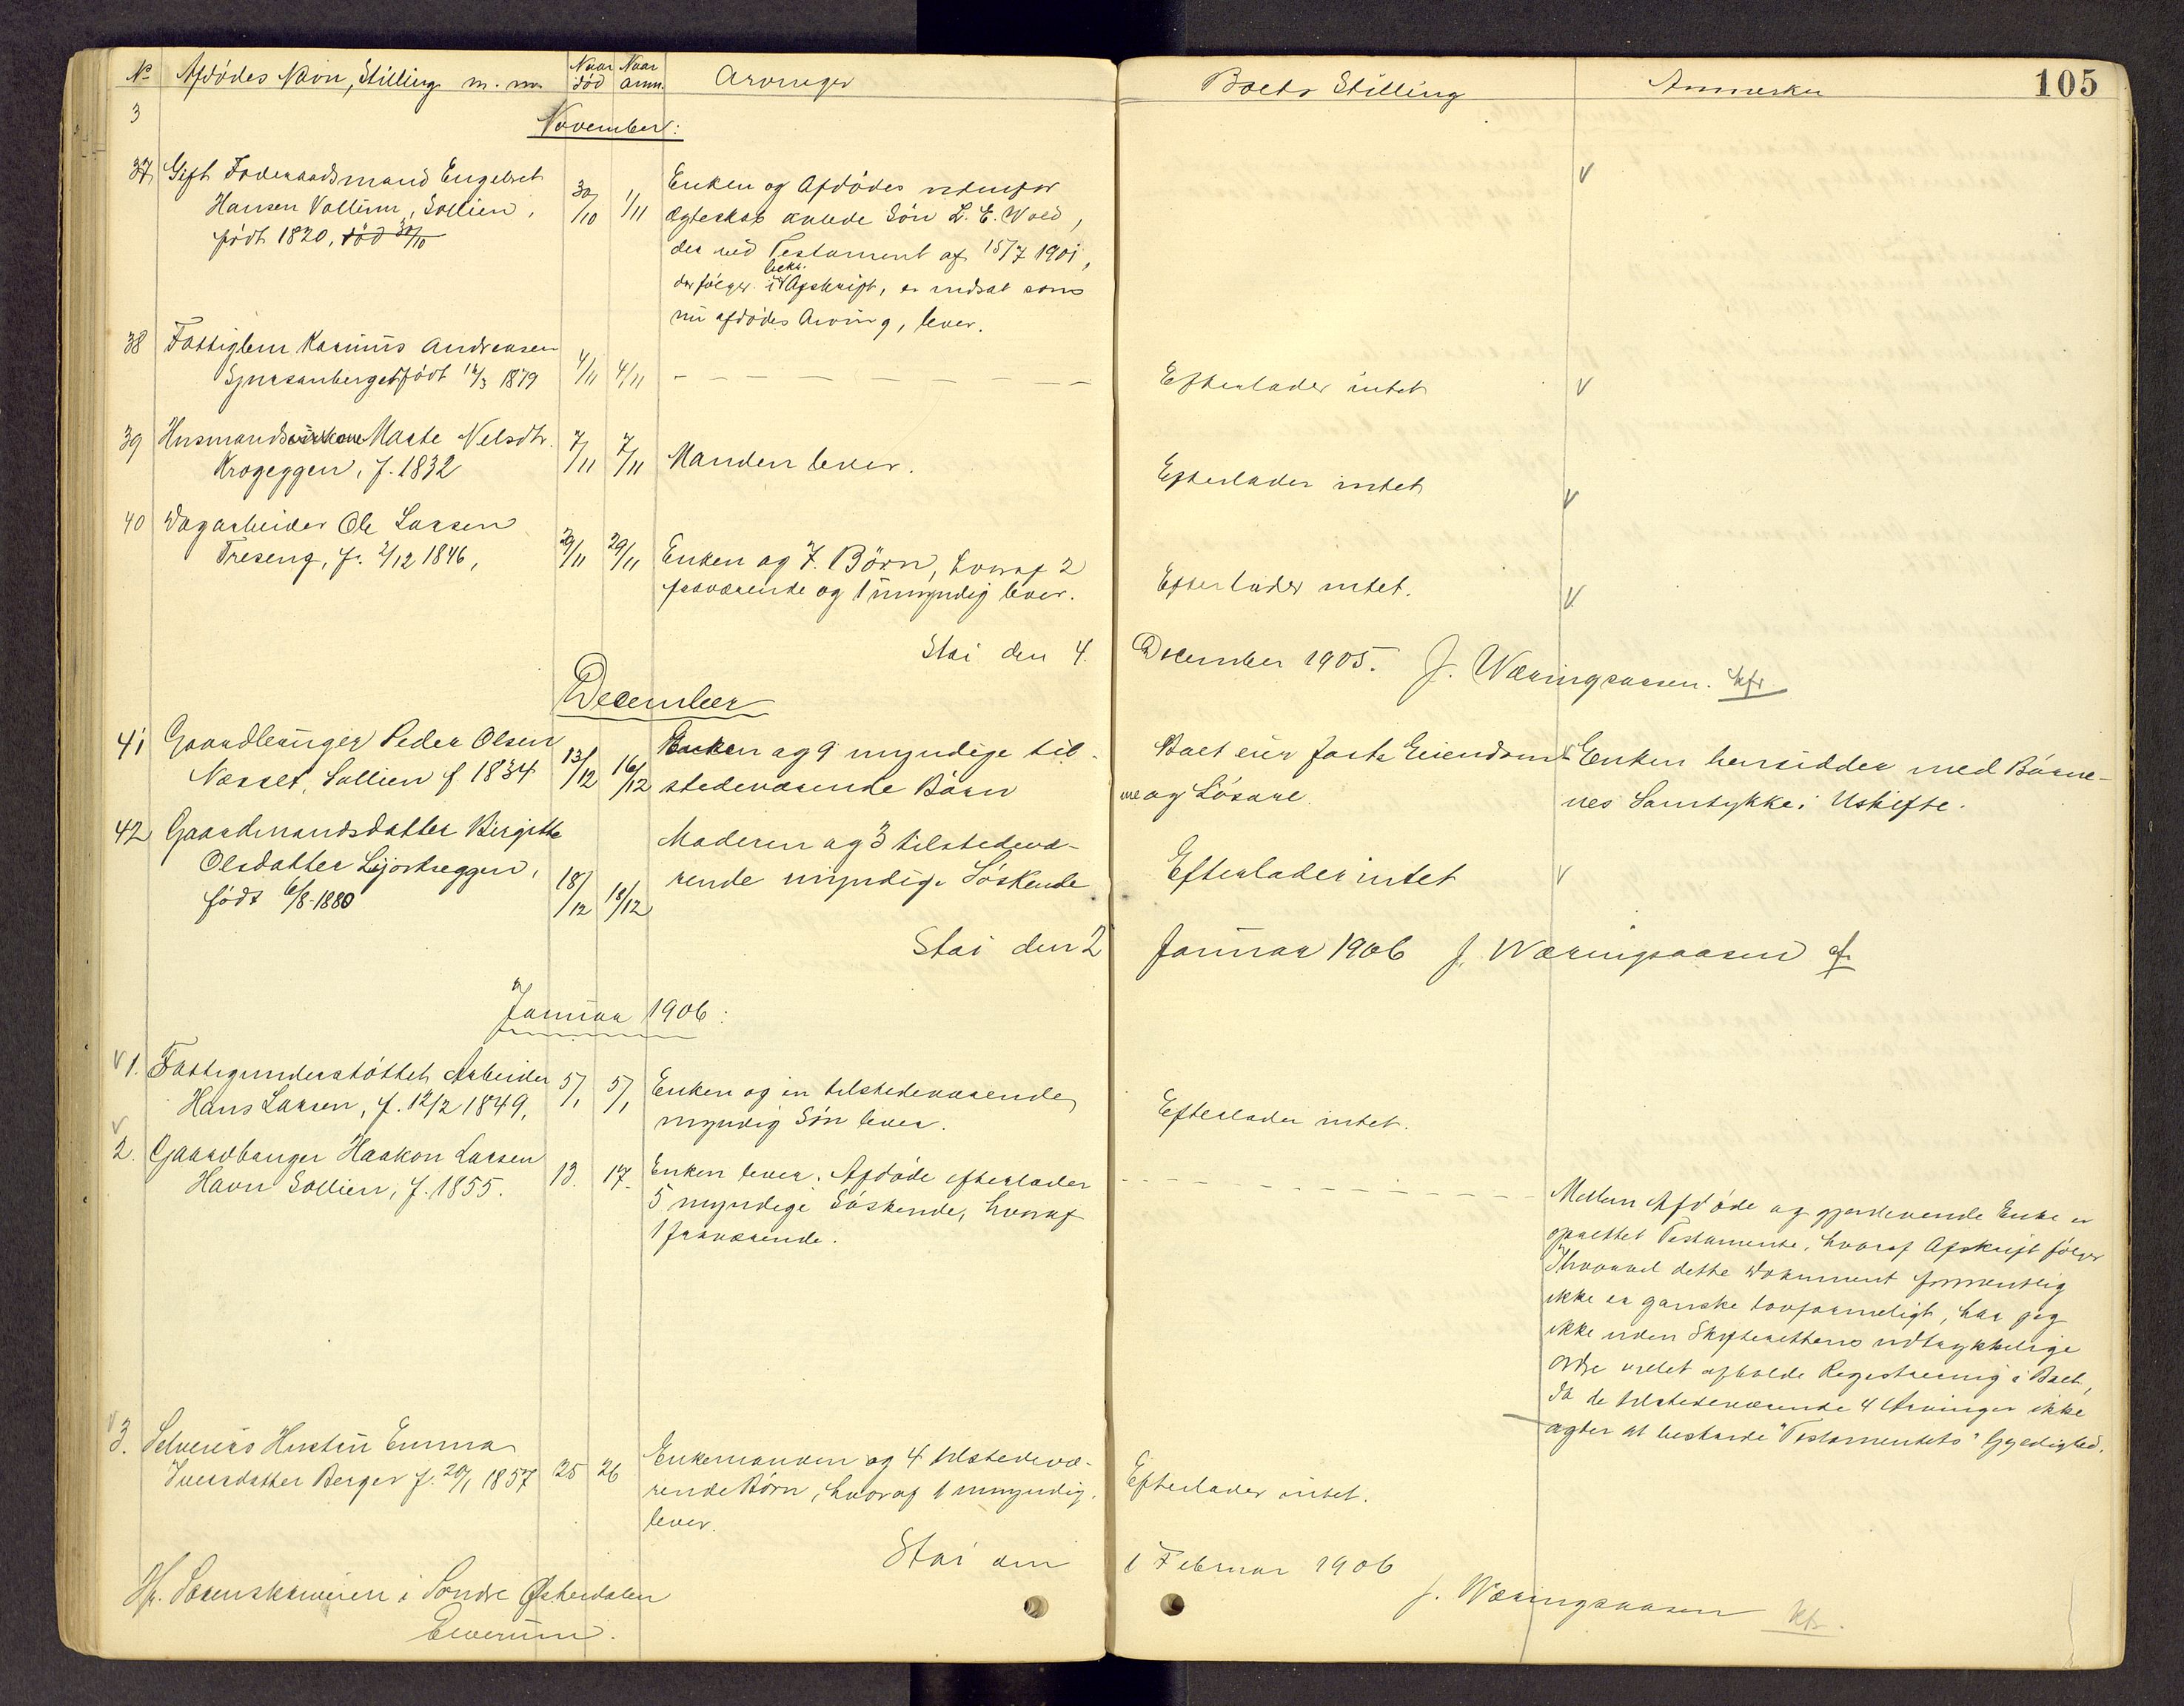 No Afdødes Navn, Stilling m. m. Naar død Naar anm. Arvinger Boets Stilling Anmerkn 105
3
November:
37 Gift Foderaadsmand Engebret
Hansen Vollum, Sollien,
født 1820, død 30/10
30/10 1/11
Enken og Afdødes udenfor
Ægteskab avlede Søn L. E. Wold,
der ved Testament af 15/7 1901,
der følger i bekr. Afskrift, er indsat som
nu afdødes Arving, lever.
V
38 Fattiglem Karinus Andreasen
født 12/3 1879 4/11 4/11 — — — — — — — — Efterlader intet V
39 Husmandskone Marte Nelsdtr.
Krogeggen, f. 1832 7/11 7/11 Manden lever. Efterlader intet V
40 Dagarbeider Ole Larsen
Treseng, f. 2/12 1846, 29/11 29/11 Enken og 7 Børn, hvoraf 2
fraværende og 1 umyndig lever. Efterlader intet. V
Stai den 4. December 1905. J. Wæringsaasen. kfr
December
41 Gaardbruger Peder Olsen
Næsset, Sollien f 1834 13/12 16/12
Enken og 9 myndige til-
stedeværende Børn
Boet eier faste Eiendom-
me og Løsøre.
Enken hensidder med Børne-
nes Samtykke i Uskifte.
42 Gaardmandsdatter Birgitte
Olsdatter Lijordseggen,
født 6/8-1880 18/12 18/12
Moderen og 3 tilstedevæ-
rende myndige Søskende
Efterlader intet V
Stai den 2 Januar 1906 J. Wæringsaasen
Januar 1906:
V 1. Fattigunderstøttet Arbeider
Hans Larsen, f. 12/2 1849, 5/1 5/1
Enken og en tilstedeværende
myndig Søn lever.
Efterlader intet.
V 2. Gaardbruger Haakon Larsen
Havn Sollien, f. 1855. 13. 17.
Enken lever. Afdøde efterlader
5 myndige Søskende, hvoraf
1 fraværende.
Mellem Afdøde og gjenlevende Enke er
oprettet Testamente, hvoraf Afskrift følger
Ihvorvel dette Dokument formentlig
ikke er ganske lovformeligt, har jeg
ikke uden Skifterettens udtrykkelige
Ordre villet afholde Registrering i Boet,
da de tilstedeværende 4 Arvinger ikke
agter at bestride "Testamentets" Gyldighed.
V 3. Selveiers Hustru Emma
Iversdatter Berger f. 20/1 1857 25 26
Enkemanden og 4 tilstedevæ-
rende Børn, hvoraf 1 umyndig.
lever.
Efterlader intet.
Stai den 1 Februar 1906
J. Wæringsaasen kfr.
Hr. Sorenskriveren i Søndre Østerdalen
Elverum.